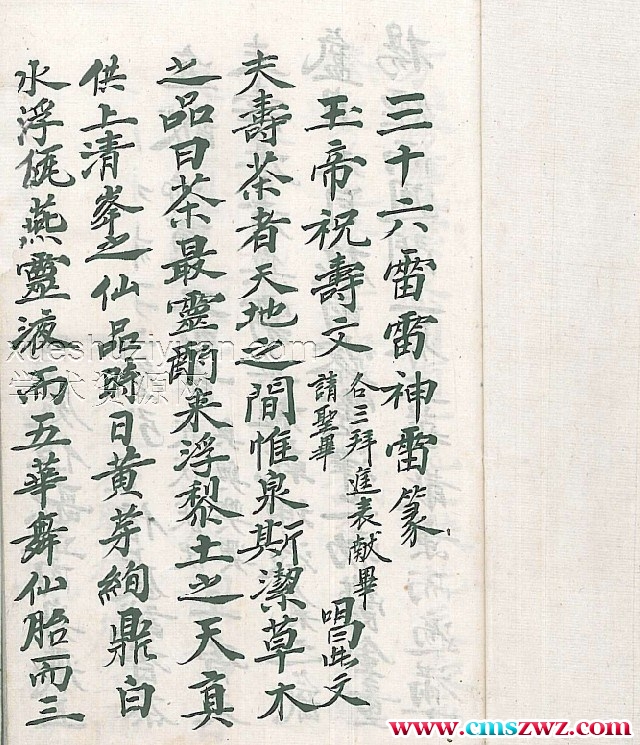 三十六雷雷神雷篆
玉帝祝壽文
各三拜進表献畢
請聖畢
唱此文
夫壽茶者天地之間惟泉斯潔草木
之品曰茶最靈酹来浮黎土之天真
供上清峯之仙品縣日黄芽絢鼎白
水浮甌燕靈液而五華舞仙胎而三
www.cmszwz.com